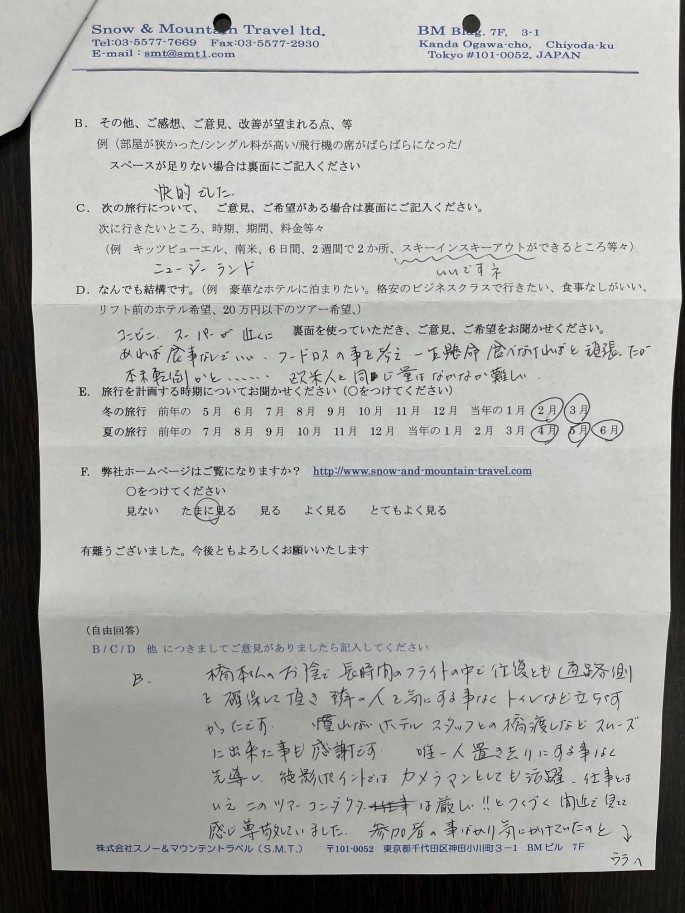 Snow & Mountain Travel ltd.
Tel:03-5577-7669 Fax:03-5577-2930
E-mail：smt@smt1.com
BM Bldg. 7F, 3-1
Kanda Ogawa-cho, Chiyoda-ku
Tokyo #101-0052, JAPAN
B. その他、ご感想、ご意見、改善が望まれる点、等
例（部屋が狭かった/シングル料が高い/飛行機の席がばらばらになった/
スペースが足りない場合は裏面にご記入ください
快的でした
C. 次の旅行について、 ご意見、ご希望がある場合は裏面にご記入ください。
次に行きたいところ、時期、期間、料金等々
（例 キッツビューエル、南米、6日間、2週間で2か所、スキーインスキーアウトができるところ等々）
ニュージーランド いいですネ
D. なんでも結構です。（例 豪華なホテルに泊まりたい。格安のビジネスクラスで行きたい、食事なしがいい、
リフト前のホテル希望、20万円以下のツアー希望、）
コンビニ、スーパーが近くに 裏面を使っていただき、ご意見、ご希望をお聞かせください。
あれば食事なしでいい、フードロスの事を考え 一生懸命 食べなければと頑張ったが
本末転倒かと…… 欧米人と同じ量はなかなか難しい、
E. 旅行を計画する時期についてお聞かせください（○をつけてください）
冬の旅行 前年の 5月 6月 7月 8月 9月 10月 11月 12月 当年の1月 2月 3月
夏の旅行 前年の 7月 8月 9月 10月 11月 12月 当年の1月 2月 3月 4月 5月 6月
F. 弊社ホームページはご覧になりますか？ http://www.snow-and-mountain-travel.com
○をつけてください
見ない たまに見る 見る よく見る とてもよく見る
有難うございました。今後ともよろしくお願いいたします
（自由回答）
B/C/D 他 につきましてご意見がありましたら記入してください
B. 橋本さんのお陰で 長時間のフライトの中で 往復とも 通路側
を 確保して頂き 隣の人を気にする事なく トイレなど立ちやす
かったです。 ホテルスタッフとの橋渡しなどスムーズ
に出来た事も感謝です。 唯一人置き去りにする事なく
先導し、撮影ポイントでは カメラマンとしても活躍、仕事とは
いえ このツアーコンダクター は厳しい!!とつくづく 間近で見て
感じ 尊敬していました。 参加者の事ばかり気にかけていたのと ↓
ウラへ
株式会社スノー＆マウンテントラベル（S.M.T.） 〒101-0052 東京都千代田区神田小川町3－1 BMビル 7F